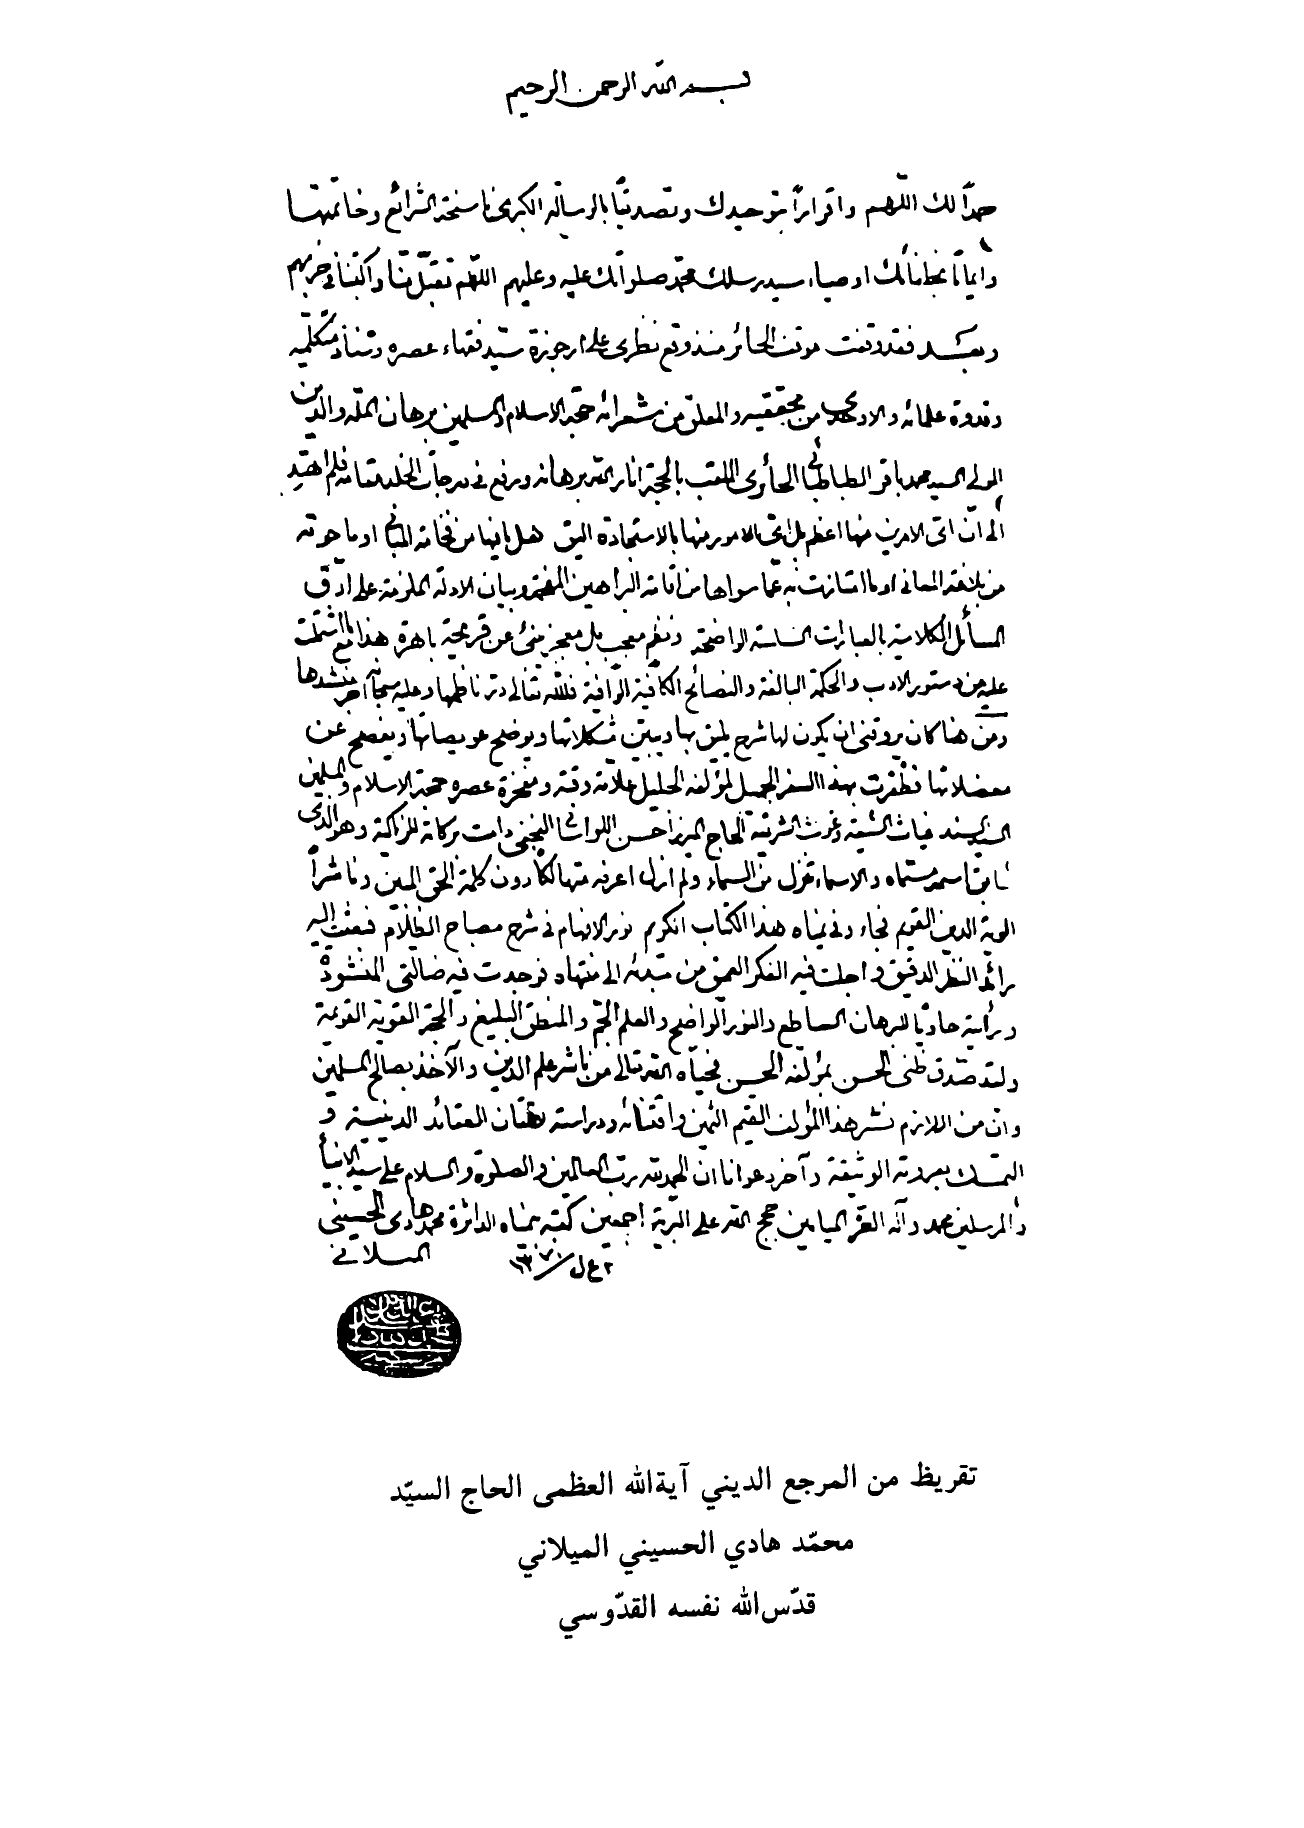 بسم الله الرحمن الرحيم
حمداً لك اللّهم واقراراً بتوحيدك وتصديقاً بالرسالة الكبرى ناسخة الشرائع وخاتمتها
وايماناً بخلفائك اوصياء سيد رسلك محمد صلواتك عليه وعليهم اللّهم تقبّل منّا واكتبنا في حزبهم
وبعد فقد وقفت موقف الحائر منذ وقع نظري على ارجوزة سيّد فقهاء عصره وسناد متكلميه
وقدوة علمائه والاوحدي من محققيه والمفلق من شعرائه حجة الاسلام والمسلمين برهان الملّة والدين
المولى السيد محمد باقر الطباطبائي الحائري الملقب بالحجة انار الله برهانه ورفع في درجات الخلد مقامه فلم اهتد
الى انّ اىّ الامرين منها اعظم بل اىّ الامور منها بالاستجادة اليق هل مافيها من فخامة المباني او ما حوته
من بلاغة المعاني او ما امتازت به عمّا سواها من اقامة البراهين المفحمة وبيان الادلة الملزمة على ادقّ
المسائل الكلامية بالعبارات السلسة الواضحة ونظم معجب بل معجز منبئ عن قريحة باهرة هذا مع ما اشتملت
عليه من دستور الادب والحكمة البالغة والنصائح الكافية الوافية فلله تعالى درّ ناظمها وعليه سبحانه اجر منشدها
ومن هنا كان يروقني ان يكون لها شرح يليق بها ويبيّن مشكلاتها ويوضح عويصاتها ويفصح عن
معضلاتها فظفرت بهذا السفر الجميل لمؤلفه الجليل علاّمة وقته ومفخرة عصره حجة الاسلام والمسلمين
السيّد السند غياث الشيعة وغوث الشريعة الحاج الميرزا حسن اللواساني النجفي دامت بركاته الزاكية وهو الذي
طابق اسمه مسمّاه والاسماء تنزل من السماء ولم ازل اعرفه منهالكاً دون كلمة الحق المبين وناشراً
الوية الدين القويم فجاء وفي يمناه هذا الكتاب الكريم نور الافهام في شرح مصباح الظلام فبعثت اليه
رائد النظر الدقيق واجلت فيه الفكر العميق من مبتدئه الى منتهاه فوجدت فيه ضالتي المنشودة
ورأيته حاوياً للبرهان الساطع والنور الواضح والعلم الجمّ والمنطق البليغ والحجة القوية القويمة
ولقد صدّق ظني الحسن بمؤلفه الحسن فحيّاه الله تعالى من ناشر علم الدين والآخذ بصالح المسلمين
وانّ من اللازم نشر هذا المؤلف القيم الثمين واقتنائه ودراسته لاتقان العقائد الدينية و
التمسك بعروته الوثيقة وآخر دعوانا ان الحمد لله ربّ العالمين والصلوة والسلام على سيّد الانبياء
والمرسلين محمد وآله الغرّ الميامين حجج الله على البرية اجمعين كتبه بيمناه الداثرة محمد هادي الحسيني
الميلاني
تقريظ من المرجع الديني آية‌الله العظمى الحاج السيّد
محمّد هادي الحسيني الميلاني
قدّس‌الله نفسه القدّوسي